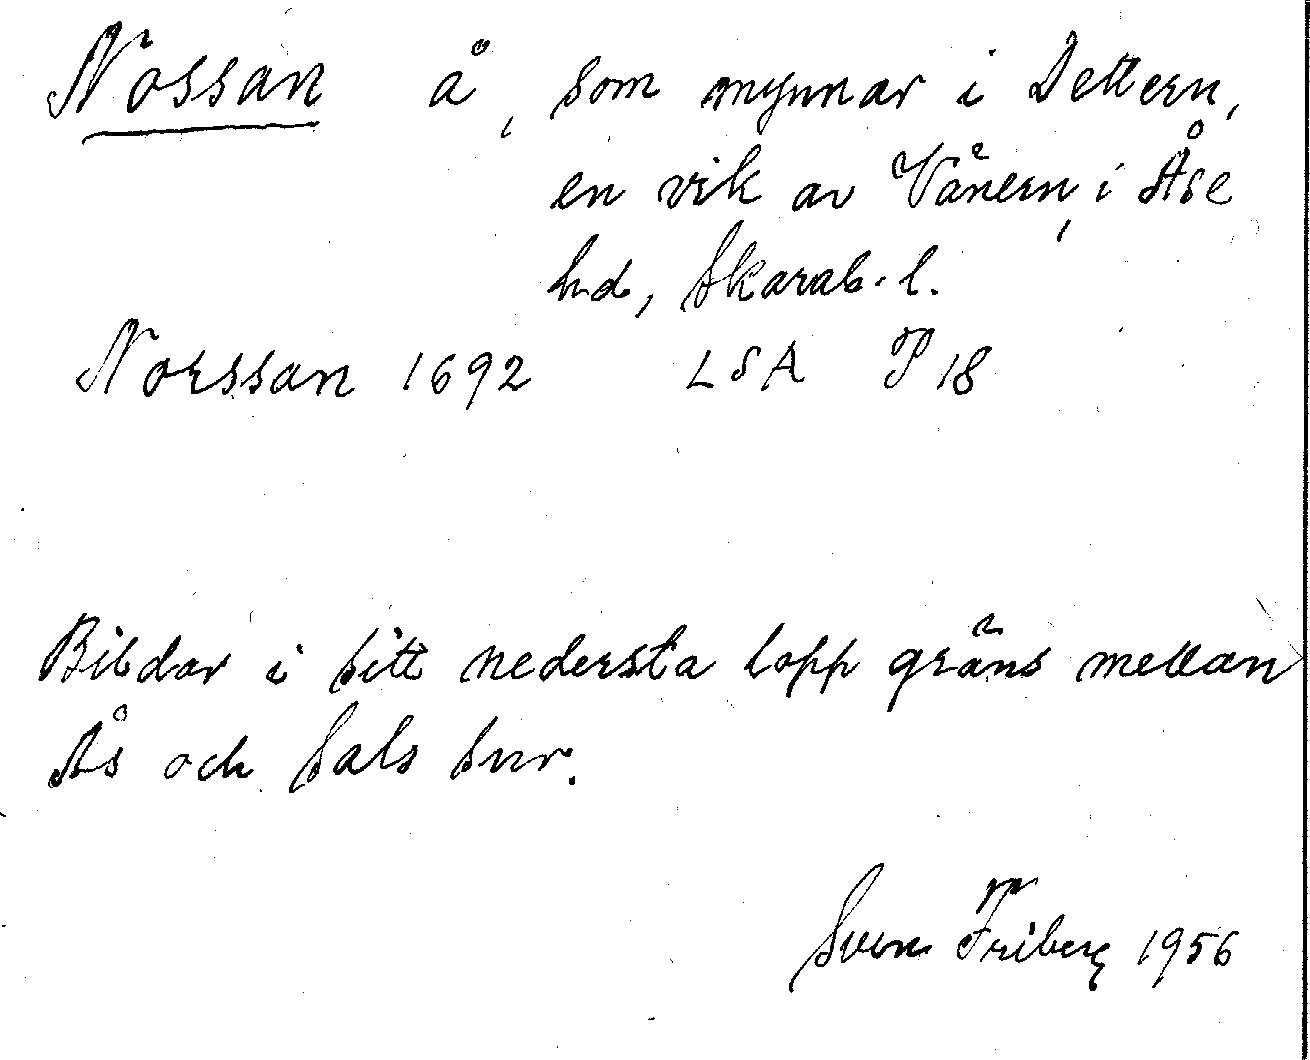 Nossan å, som mynnar i Dettern,
en vik av Vänern, i Åse
hd, Skarab. l.
Norssan 1692 LSA P 18
Bildar i sitt nedersta lopp gräns mellan
Ås och Sals snr.
Sven Friberg 1956